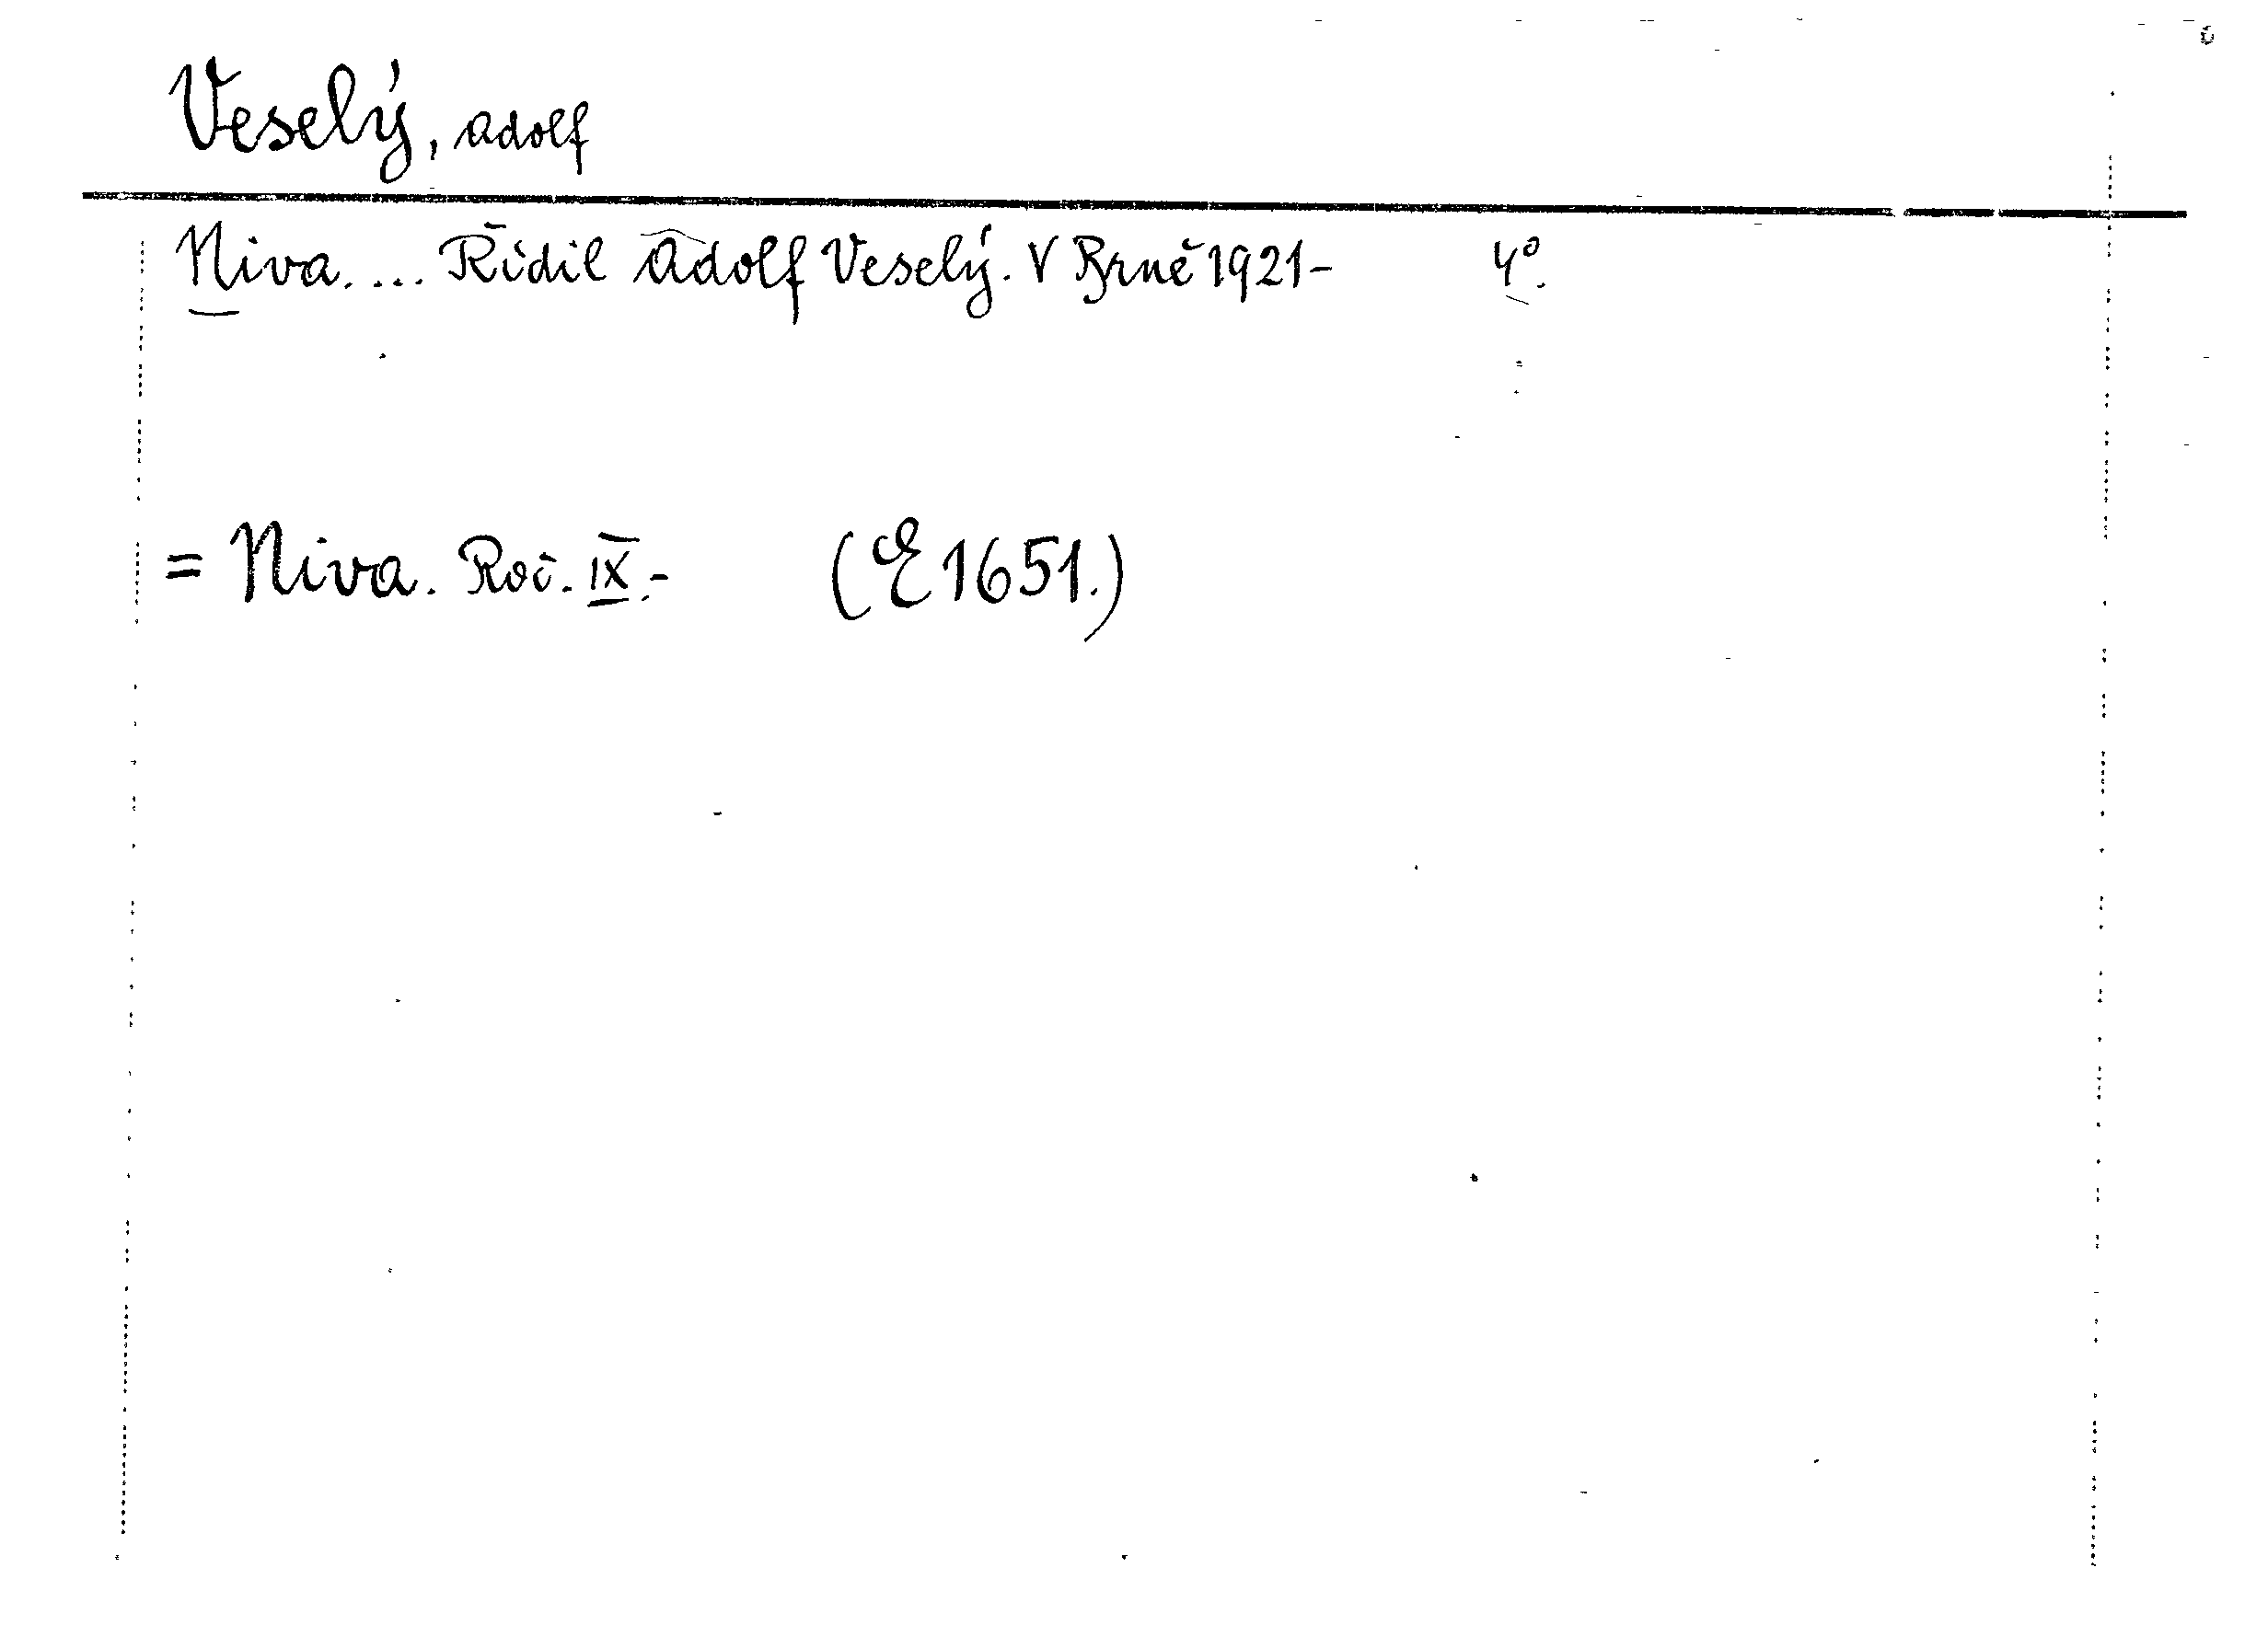 Veselý, Adolf
Niva.... Řídil Adolf Veselý. V Brně 1921- 4°.
= Niva. Roč. IX.- (E 1651.)